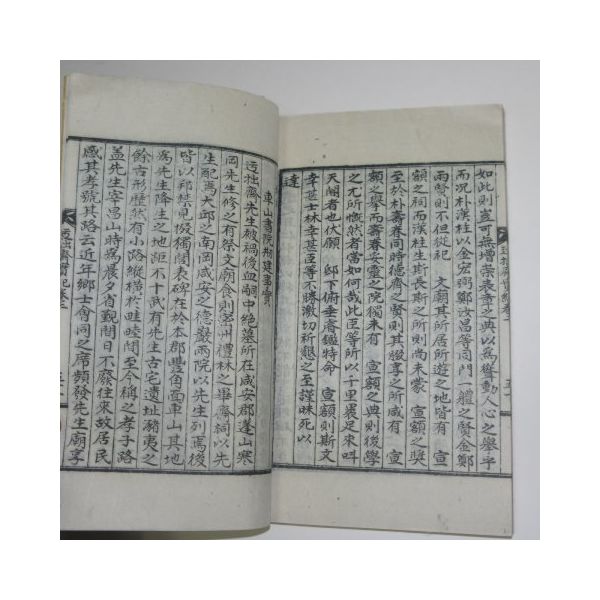 如此則豈可無增榮表章之典以爲聳動人心之擧乎
而况朴漢柱以金宏弼鄭汝昌等同門一體之賢金鄭
兩賢則不但從祀 文廟其所居所遊之地皆有 宣
額之祠而漢柱生斯長斯之所則尚未蒙 宣額之獎
至於朴壽春同時德齋之賢則其腏享之所咸有 宣
額之擧而壽春妥靈之院獨未有 宣額之典則後學
之冘所慨然者當如何哉此臣等所以千里裹足來呌
天閽者也伏願 邸下俯垂睿鑑特命 宣額則斯文
幸甚士林幸甚臣等不勝激切祈懇之至謹昧死以
達
車山書院剏建事實
迂拙齋先生被禍後血嗣中絶墓所在咸安郡蓬山寒
岡先生修之有祭文廟食則密州禮林之畢齋祠以先
生配焉大邱之南岡咸安之德巖兩院以先生列焉後
皆以邦禁見撤獨閭表碑在於本郡豊角面車山其地
爲先生降生之地距不十武有先生古宅遺址豬夷之
餘古形歷然有小路縱橫於畦畤間至今稱之孝子路
盖先生宰昌山時爲晨夕省覲間日不廢往來故居民
感其孝號其路云近年鄕士會同之席頻發先生廟享
迂拙齋實紀卷之
五十